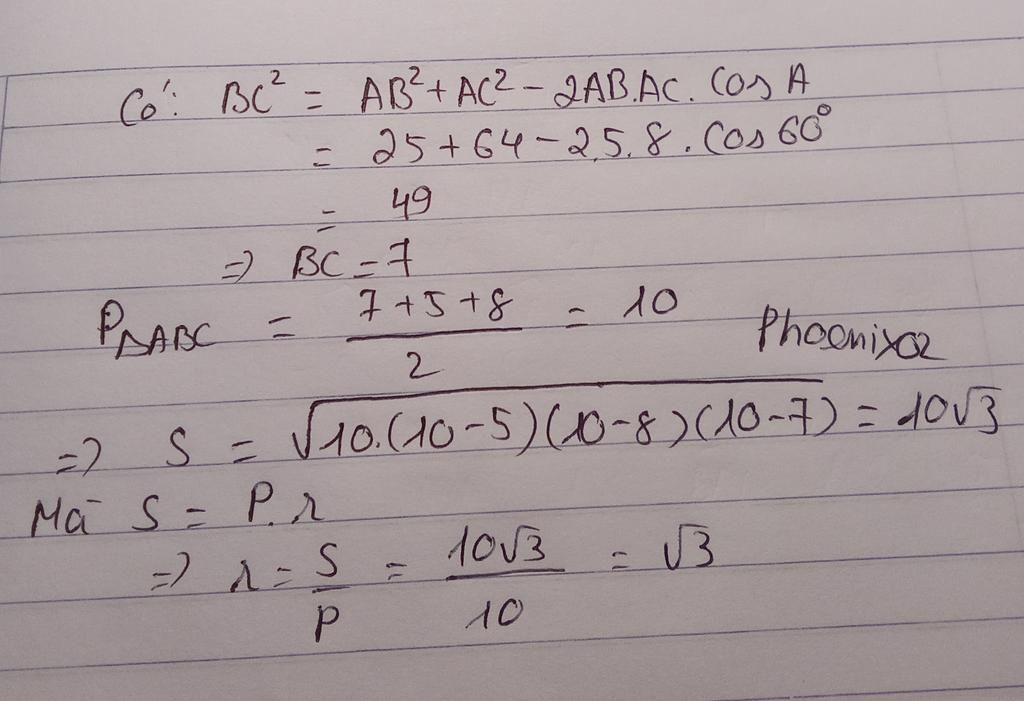 Có: BC² = AB² + AC² - 2AB.AC. Cos A
= 25 + 64 - 2.5.8. Cos 60°
= 49
=> BC = 7
P△ABC = (7+5+8)/2 = 10
Phoenix02
=> S = √(10.(10-5)(10-8)(10-7)) = 10√3
Mà S = P.r
=> r = S/P = 10√3/10 = √3